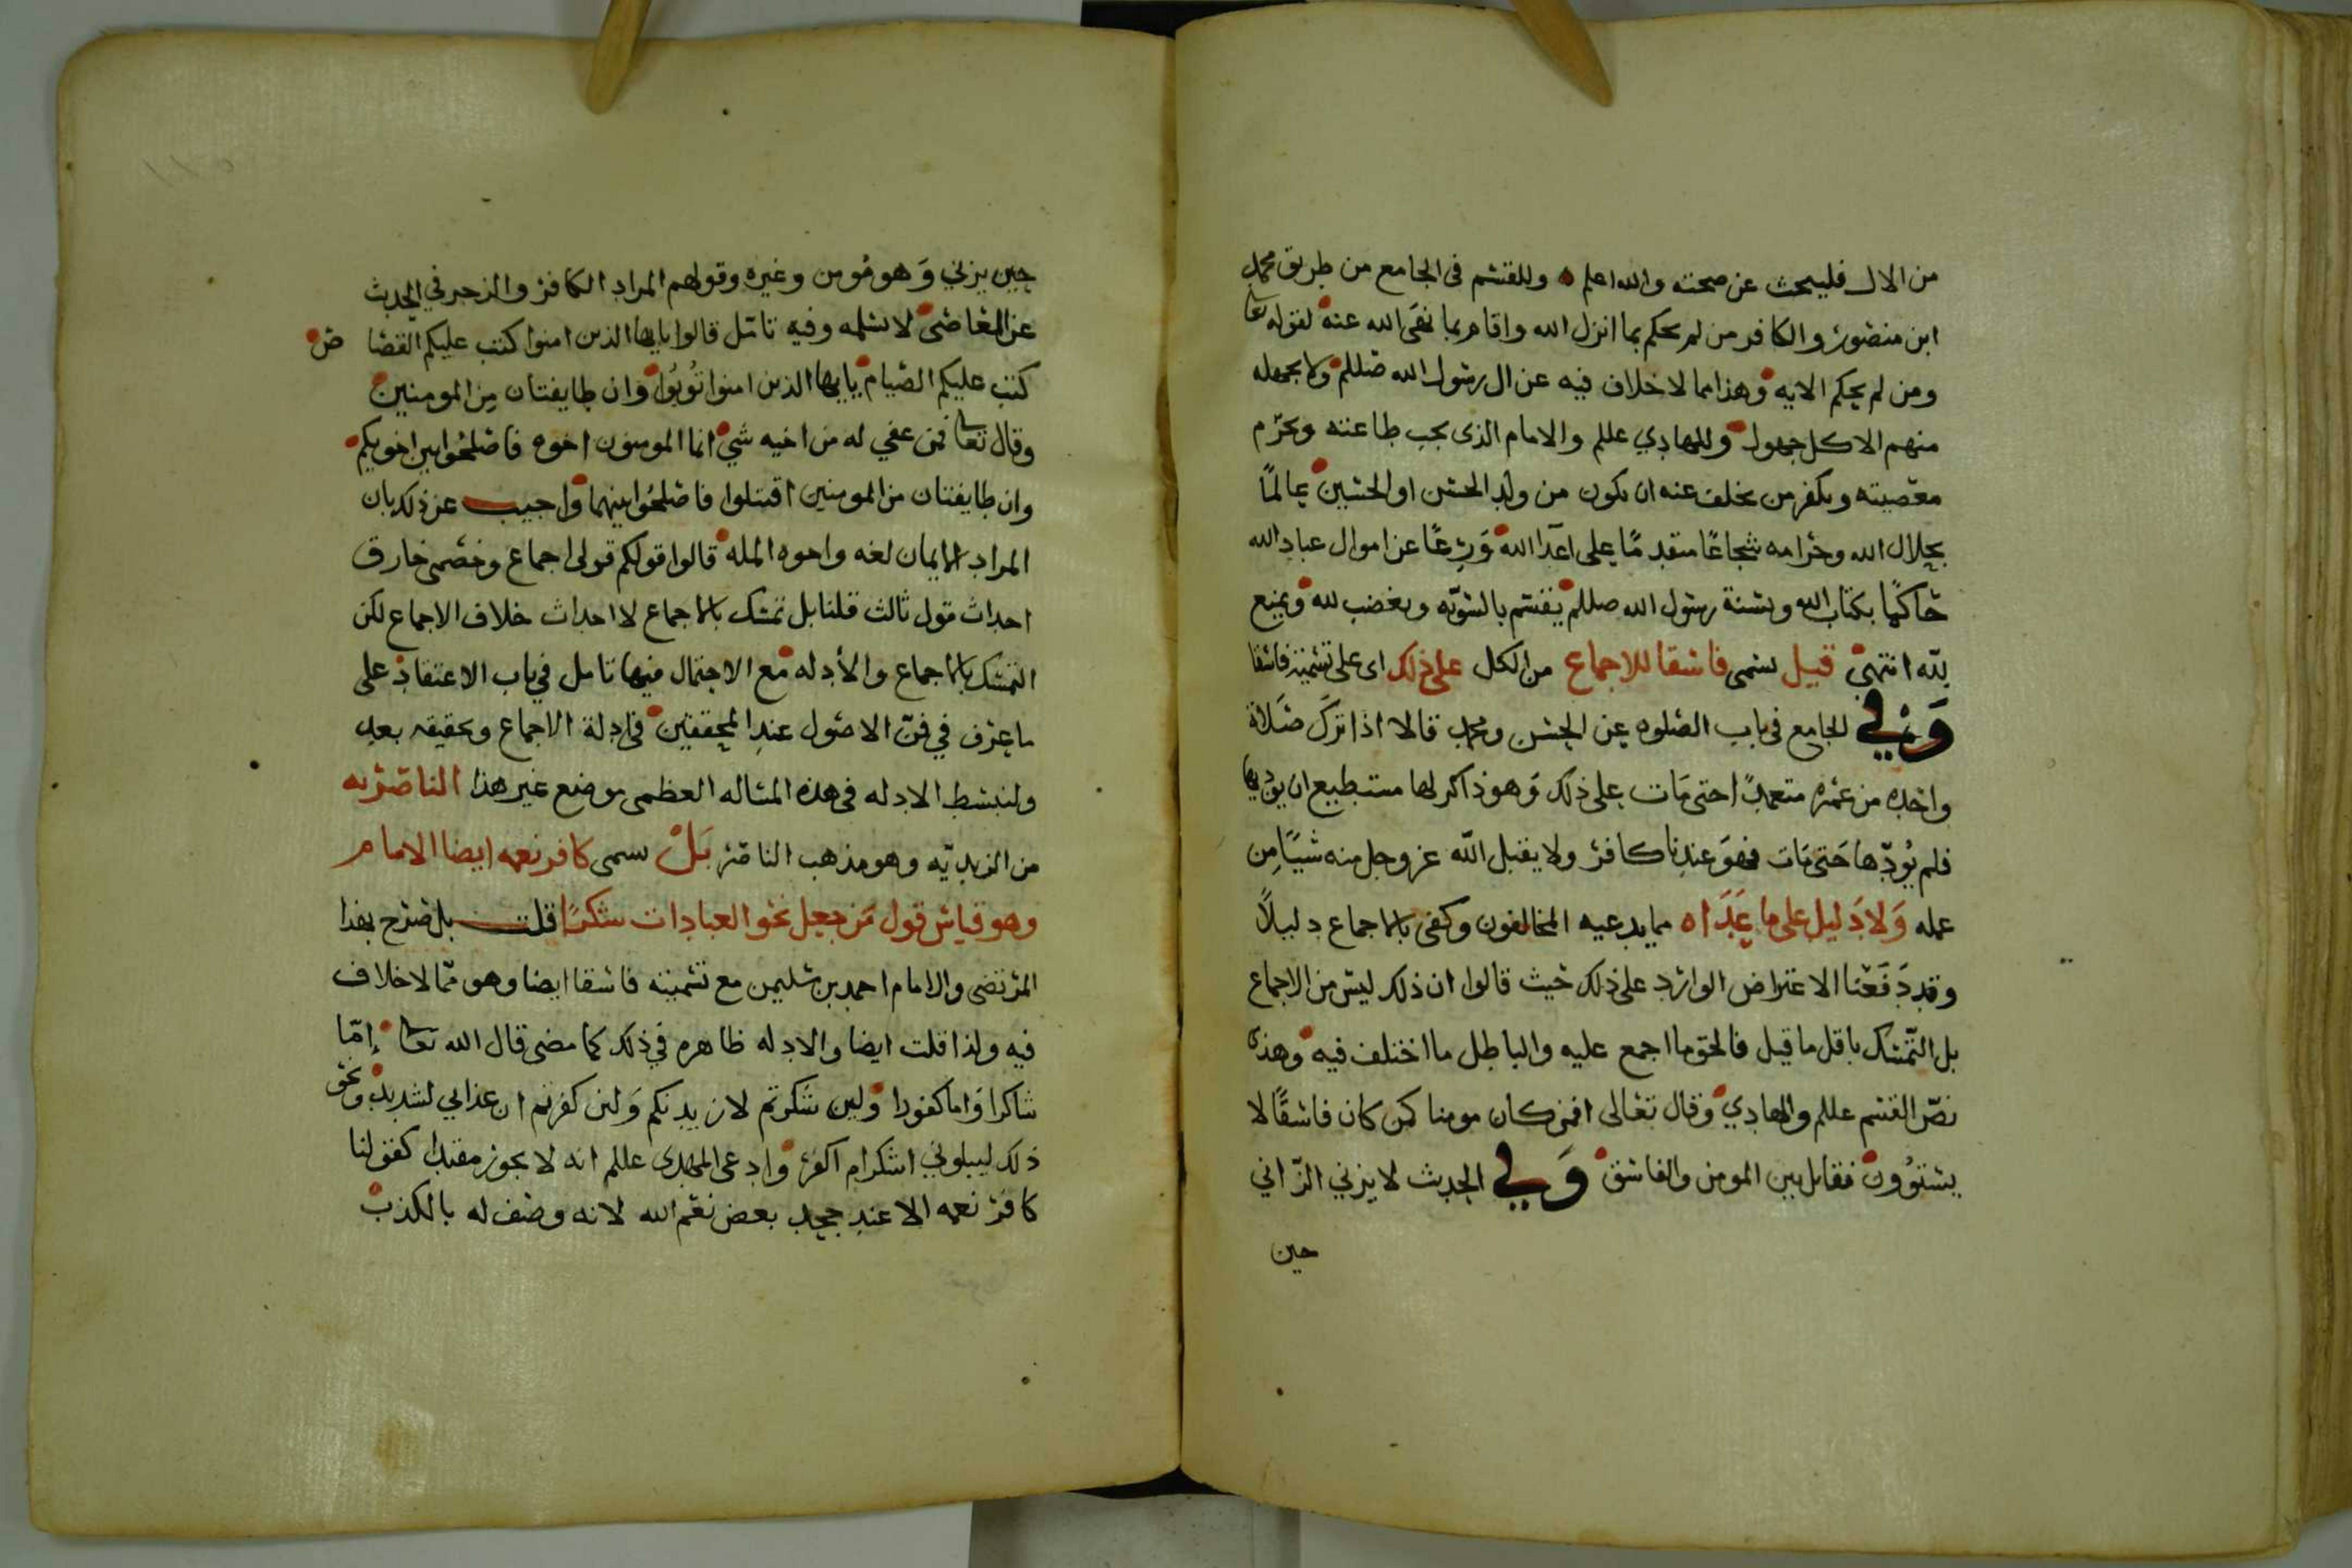 من الال فليبحث عن صحته والله اعلم ٥ وللقسم في الجامع من طريق محمد
ابن منصور والكافر من لم يحكم بما انزل الله واقام بما نهى الله عنه لقوله تعا
ومن لم يحكم الايه وهذا مما لا خلاف فيه عن ال رسول الله صللم ولا يجهله
منهم الا كل جهول وللهادي عللم والامام الذى يجب طاعته وتحرم
معصيته ويكفر من تخلف عنه ان يكون من ولد الحسن او الحسين عالمًا
بحلال الله وحرامه شجاعًا متقدمًا على اعدا الله وَرِعًا عن اموال عباد الله
حاكمًا بكتاب الله وبسنة رسول الله صللم يقسم بالسويّه ويغضب لله ويمنع
لله انتهى قيل سمى فاسقا للاجماع من الكل على ذلك اى على تسميته فاسقا
وَفي الجامع في باب الصلوه عن الحسن ومحمد قالا اذا ترك صَلاة
واحده من عمره متعمدًا حتى مَات على ذلك وَهو ذاكر لها مستطيع ان يوديها
فلم يُودّها حَتى مَات فهوَ عندنا كافر ولا يقبل الله عز وجل منه شيًا مِن
عمله وَلا دَليل على ما عَدَاه مما يدعيه المخالفون وكفى بالاجماع دليلاً
وقد دَفَعْنا الاعتراض الوارد على ذلك حيث قالوا ان ذلك ليس من الاجماع
بل التّمسّك باقل ما قيل فالحق ما اجمع عليه والباطل ما اختلف فيه وهذى
نصّ القسم عللم والهادي وقال تعالى افمن كان مومنا كمن كان فاسقًا لا
يستوُون فقابل بين المومن والفاسق وَفي الحديث لا يزني الزّاني
حين
حين يزني وَهو مُومن وغيره وقولهم المراد الكافر والزجر في الحديث
عن المعاصى لا نسلمه وفيه تامّل قالوا يايها الذين امنوا كتب عليكم القصا ص
كتب عليكم الصيام يايها الذين امنوا تُوبُوا وان طايفتان مِن المومنين
وقال تعا فمن عفي له من اخيه شي انما المومنون اخوه فاصلحُوا بين اخويكم
وان طايفتان من المومنين اقتتلوا فاصلحُوا بينهما واجيب عن ذلك بان
المراد الايمان لغه واخوه المله قالوا قولكم قولى اجماع وخصمى خارق
احداث قول ثالث قلنا بل تمسك بالاجماع لا احداث خلاف الاجماع لكن
التمسك بالاجماع والأدله مع الاحتمال فيها تامل في باب الاعتقاد على
ما عرف في فنّ الاصُول عند المحققين في ادلة الاجماع وتحقيقه بعد
ولنبسط الادله في هذه المساله العظمى موضع غير هذا الناصريه
من الزيديّه وهو مذهب الناصر بَلْ سمى كافر نعمه ايضا الامام
وهو قياس قول مَن جعل نحو العبادات شكرًا قلت بل صرح بهذا
المرتضى والامام احمد بن سليمن مع تسميته فاسقا ايضا وهو ممّا لا خلاف
فيه ولذا قلت ايضا والادله ظاهره في ذلك كما مضى قال الله تعا إمّا
شاكرا وَاما كفورا ولين شكرتم لازيدنكم وَلئن كفرتم ان عذابي لشديد ونحو
ذلك ليبلوني اشكرام اكفر وادعى المهدى عللم انه لا يجوز مقيدا كقولنا
كافر نعمه الا عند جحد بعض نعم الله لانه وصف له بالكذب